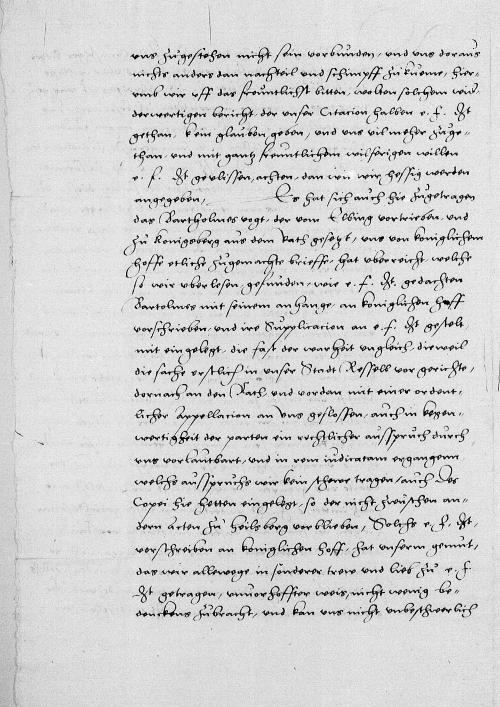 uns zugestehen nicht sein vorbunden, und uns doraus
nichts anders dan nachteil und schimpff zukueme, hier-
umb wir uff das freuntlichst bitten, wolten solchem wid-
derwertigen bericht, der unser Citacion halben e. f. Dt
gethan, kein glauben geben, und uns vil meher zuge-
than, und mit gantz freuntlichem wilferigen willen
e. f. Dt gevlissen, achten, dan wir hessig werden
angegeben, Es hat sich auch hie zugetragen
das Bartholmes vogt, der vom Elbing vortrieben, und
zu Konigsberg aus dem Rath gesetzt, uns von koniglichem
hoffe etliche zugemachte brieffe, hat uberreicht, welche
so wir uberlesen, gefunden, wie e. f. Dt. gedachten
Bartolmes mit seinem anhange, an koniglichen hoff
vorschrieben, und ire Supplicacion an e. f. Dt gestelt
mit eingelegt, die fast der warheit ungleich, dieweil
die sache erstlich in unser Stadt Ressell vor gerichte,
dornach an den Rath, und vordan mit einer ordent-
licher Appellacion an uns geflossen, auch in kegen-
wertigheit der parten ein rechtlicher ausspruch durch
uns vorlautbart, und in rem iudicatam ergangenn
welchs ausspruchs wir kein schewe tragen, auch des
Copei hie hetten eingelegt, so der nicht zwuschen an-
dern Acten zu Heilsberg vorblieben, Solchs e. f. Dt.
vorschreiben an koniglichen hoff, hat unserm gemut,
das wir allewege in sonderer trew und lieb zu e. f.
Dt getragen, unvorhoffter weis, nicht wenig be-
denckens zubracht, und kan uns nicht unbeschwerlich